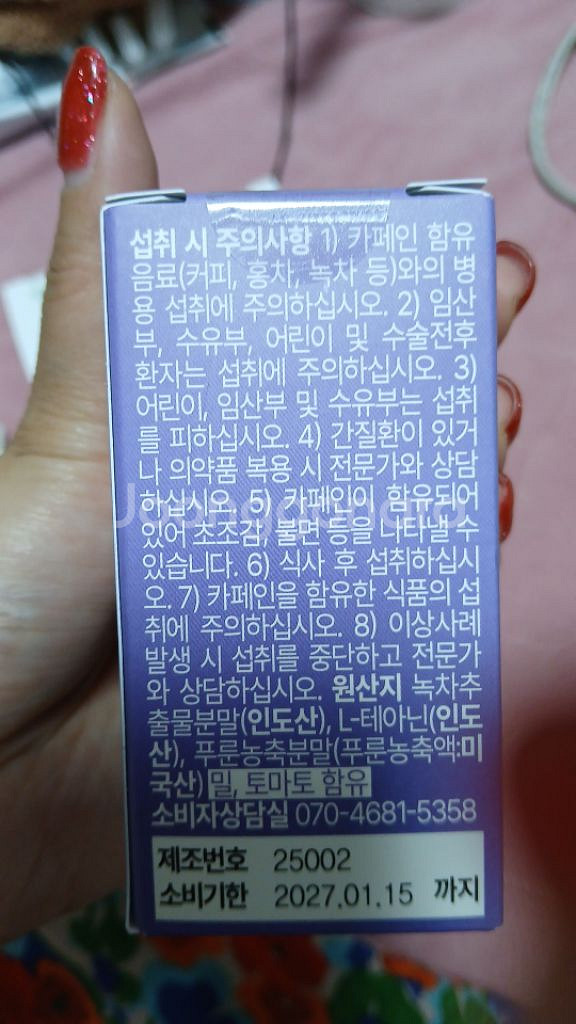 섭취 시 주의사항 1) 카페인 함유
음료(커피, 홍차, 녹차 등)와의 병
용 섭취에 주의하십시오. 2) 임산
부, 수유부, 어린이 및 수술전후
환자는 섭취에 주의하십시오. 3)
어린이, 임산부 및 수유부는 섭취
를 피하십시오. 4) 간질환이 있거
나 의약품 복용 시 전문가와 상담
하십시오. 5) 카페인이 함유되어
있어 초조감, 불면 등을 나타낼 수
있습니다. 6) 식사 후 섭취하십시
오. 7) 카페인을 함유한 식품의 섭
취에 주의하십시오. 8) 이상사례
발생 시 섭취를 중단하고 전문가
와 상담하십시오. 원산지 녹차추
출물분말(인도산), L-테아닌(인도
산), 푸룬농축분말(푸룬농축액:미
국산) 밀, 토마토 함유
소비자상담실 070-4681-5358
제조번호 25002
소비기한 2027.01.15 까지